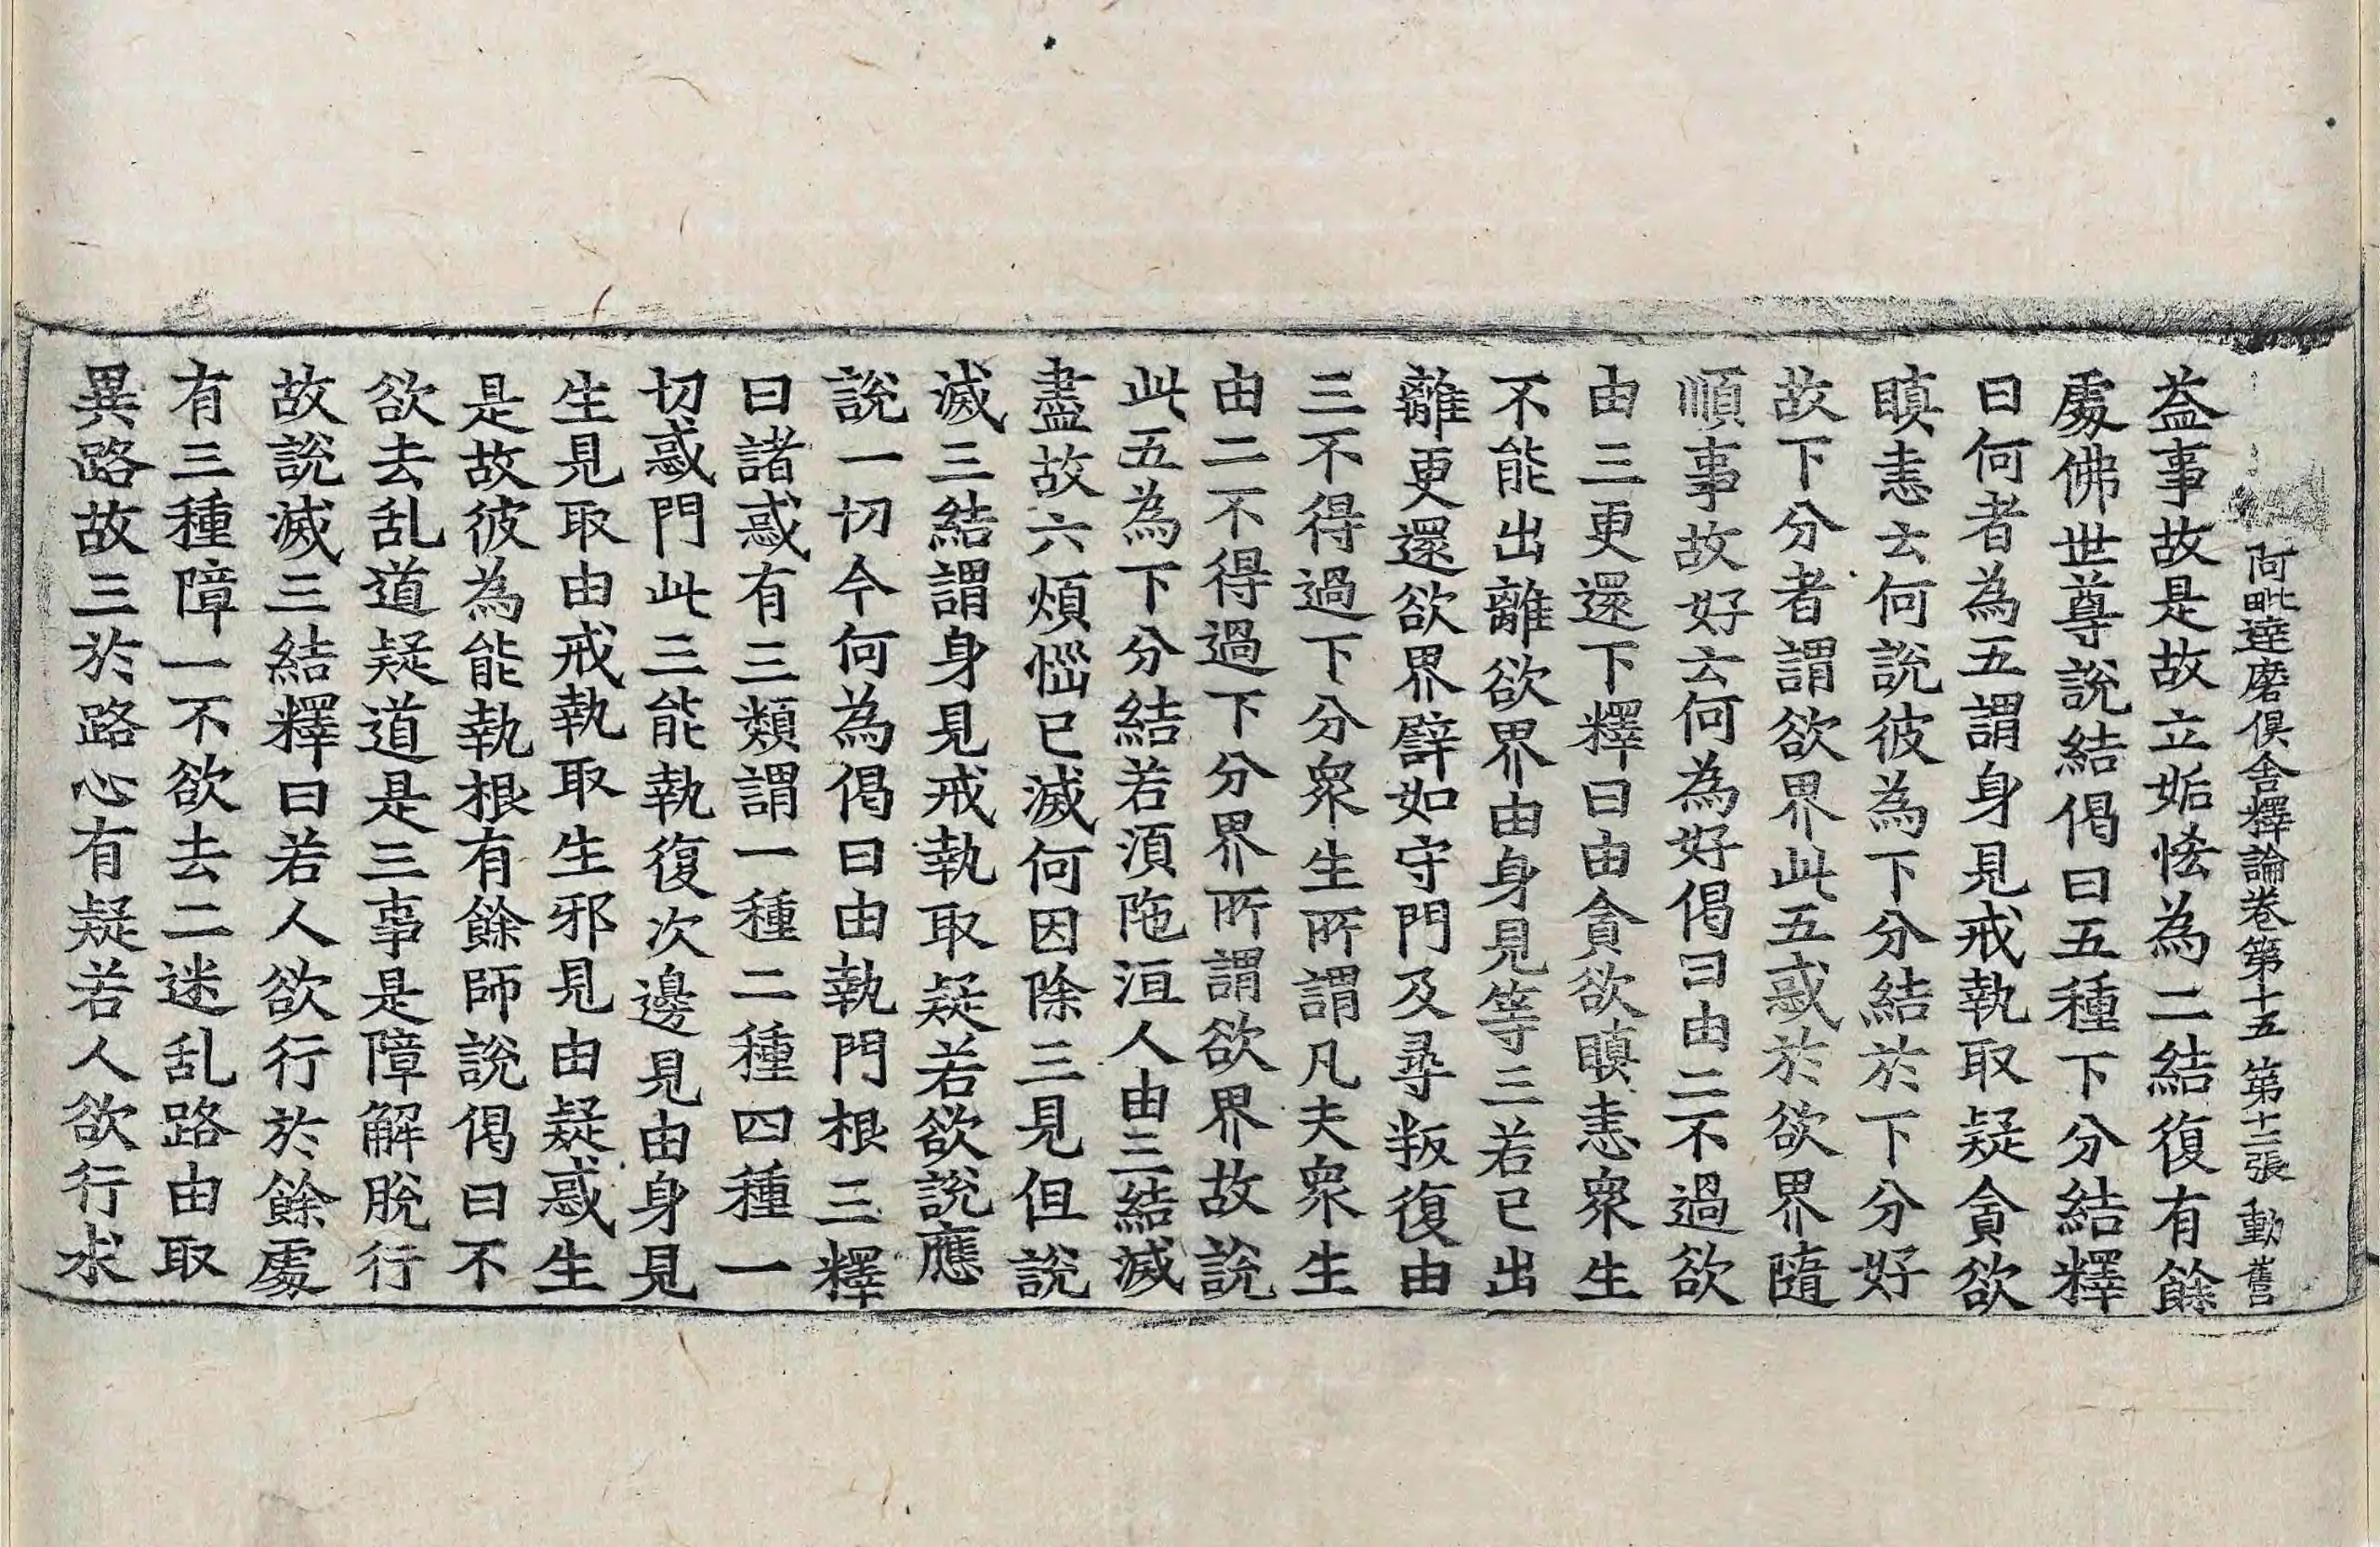 阿毗達磨俱舍釋論卷第十五 第十二張 動 舊
益事故是故立姤恡為二結復有餘
處佛世尊說結偈曰五種下分結釋
曰何者為五謂身見戒執取疑貪欲
瞋恚云何說彼為下分結於下分好
故下分者謂欲界此五惑於欲界隨
順事故好云何為好偈曰由二不過欲
由三更還下釋曰由貪欲瞋恚衆生
不能出離欲界由身見等三若已出
離更還欲界譬如守門及尋叛復由
三不得過下分衆生所謂凡夫衆生
由二不得過下分界所謂欲界故說
此五為下分結若須陁洹人由三結滅
盡故六煩惱已滅何因除三見但說
滅三結謂身見戒執取疑若欲說應
說一切今何為偈曰由執門根三釋
曰諸惑有三類謂一種二種四種一
切惑門此三能執復次邊見由身見
生見取由戒執取生邪見由疑惑生
是故彼為能執根有餘師說偈曰不
欲去乱道疑道是三事是障解脫行
故說滅三結釋曰若人欲行於餘處
有三種障一不欲去二迷乱路由取
異路故三於路心有疑若人欲行求